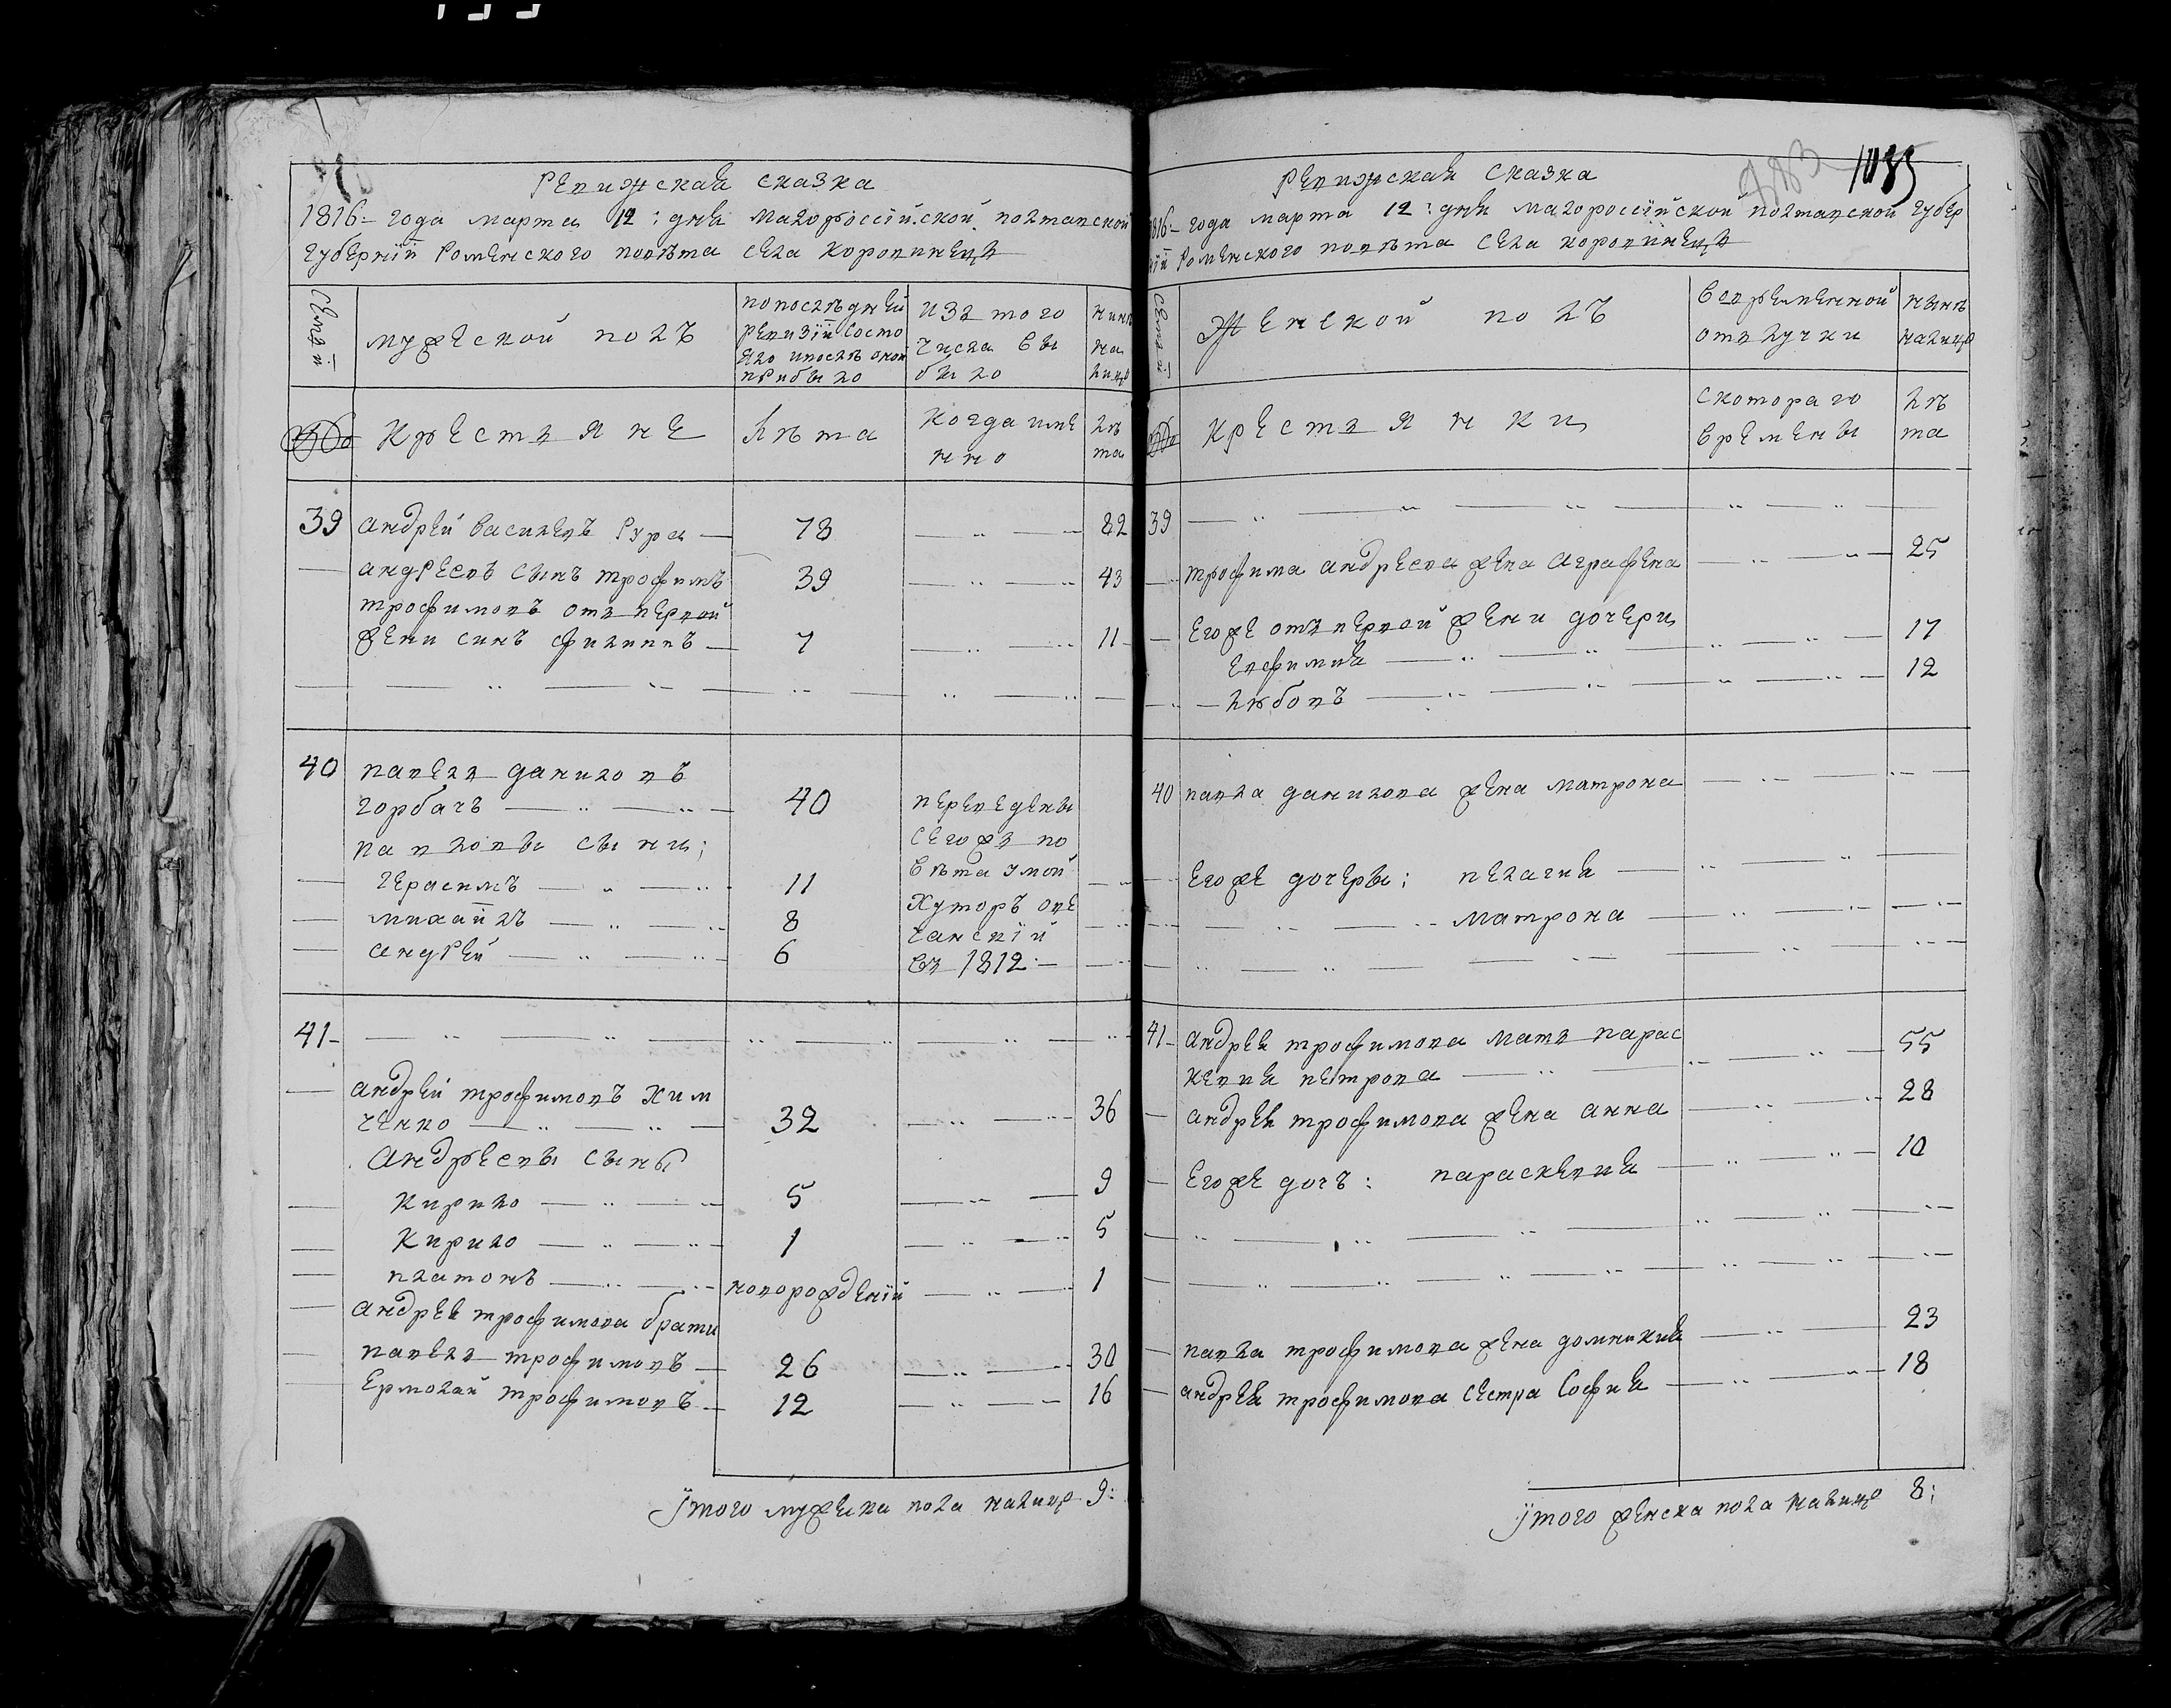 Ревижская сказка
1816 — года марта 12: дня малороссiйской полтавской
губернiи роменского повѣта села коровинець
Семьи
мужеской полъ
по последней
ревизiи состо
яло и после оной
прибыло
изъ того
числа вы
было
нинѣ
на
лицо
№
Крестьяне
лѣта
когда име
нно
лѣ
та
39 андрей васильевъ Гура — 78 82
андреевъ сынъ трофимъ 39 43
трофимовъ отъ первой
жени синъ филиппъ — 7 11
40 павелъ даниловъ
горбачъ 40 переведены
павловы сыни; сегожъ по
вѣта у мой
герасимъ 11
хуторъ
михайлъ 8
андрей 6
въ 1812:—
41—
андрей трофимовъ хим
ченко 32 36
Андреевы сыны
Кирило 5 9
Кирило 1 5
платонъ новорожденiй 1
андрея трофимова брати
павелъ трофимовъ — 26 30
Ермолай трофимовъ — 12 16
Итого мужеска пола налицо 9:
783 1085
Ревижская сказка
1816— года марта 12: дня малороссiйской полтавской губер
нiи роменского повѣта села коровинець
Семьи
Женской полъ
Во временной
отлучки
нынѣ
налицо
№
крестьянки
скоторого
времены
лѣ
та
39
трофима андреева жена аграфена 25
Егоже отъ первой жени дочери
Евфимия 17
любовь 12
40 павла данилова жена матрона
Егоже дочеры: пелагия
матрона
41— андрея трофимова мать парас
кевия петрова 55
андрея трофимова жена анна 28
Егоже дочь: параскевия 10
павла трофимова жена домникия 23
андрея трофимова сестра София 18
Итого женска пола налицо 8: